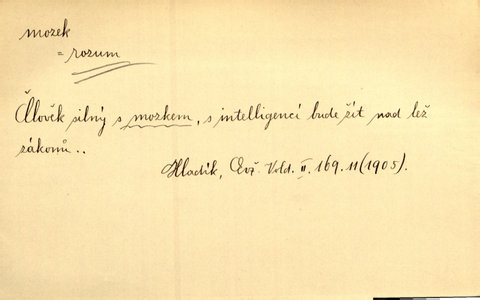 mozek
= rozum
Člověk silný s mozkem, s intelligencí bude žít nad lež
zákonů..
Hladík, Evž. Vold. II. 169. 11 (1905).